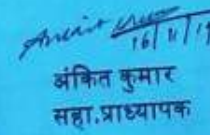 16/11/1
अंकित कुमार
सहा.प्राध्यापक